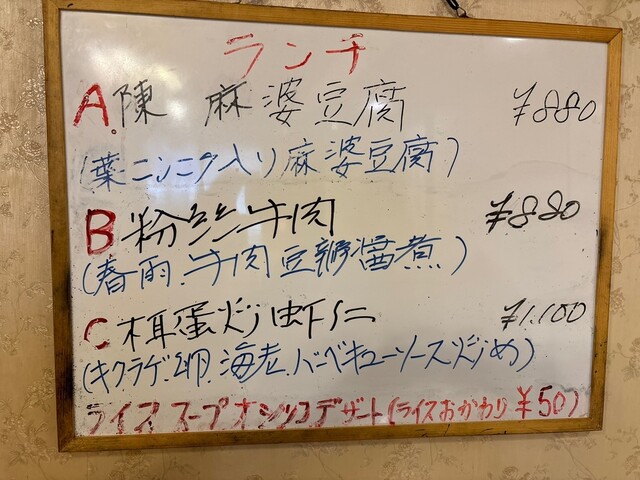 ランチ
A.陳 麻婆豆腐 ¥880
(葉ニンニク入り麻婆豆腐)
B 粉丝牛肉 ¥880
(春雨.牛肉豆瓣醤煮)
C 木耳蛋炒虾仁 ¥1.100
(キクラゲ.卵.海老.バーベキューソース炒め)
ライス スープ オシンコ デザート(ライスおかわり ¥50)